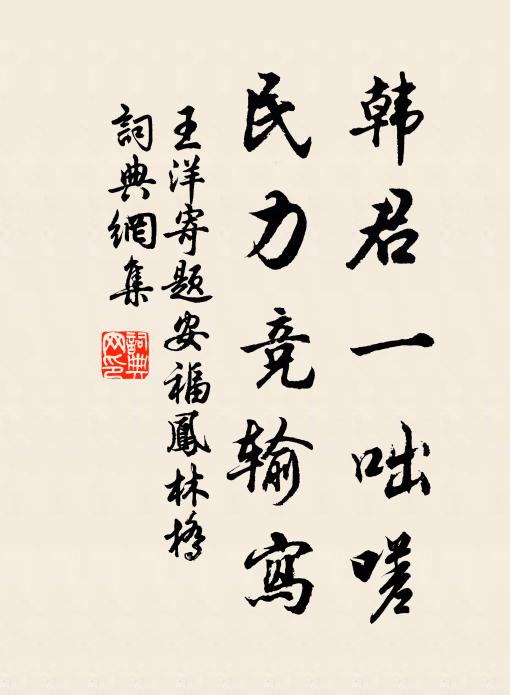 韩君一咄嗟
民力竞输寫
王洋寄题安福鳳林橋
詞典網集
詞典网印